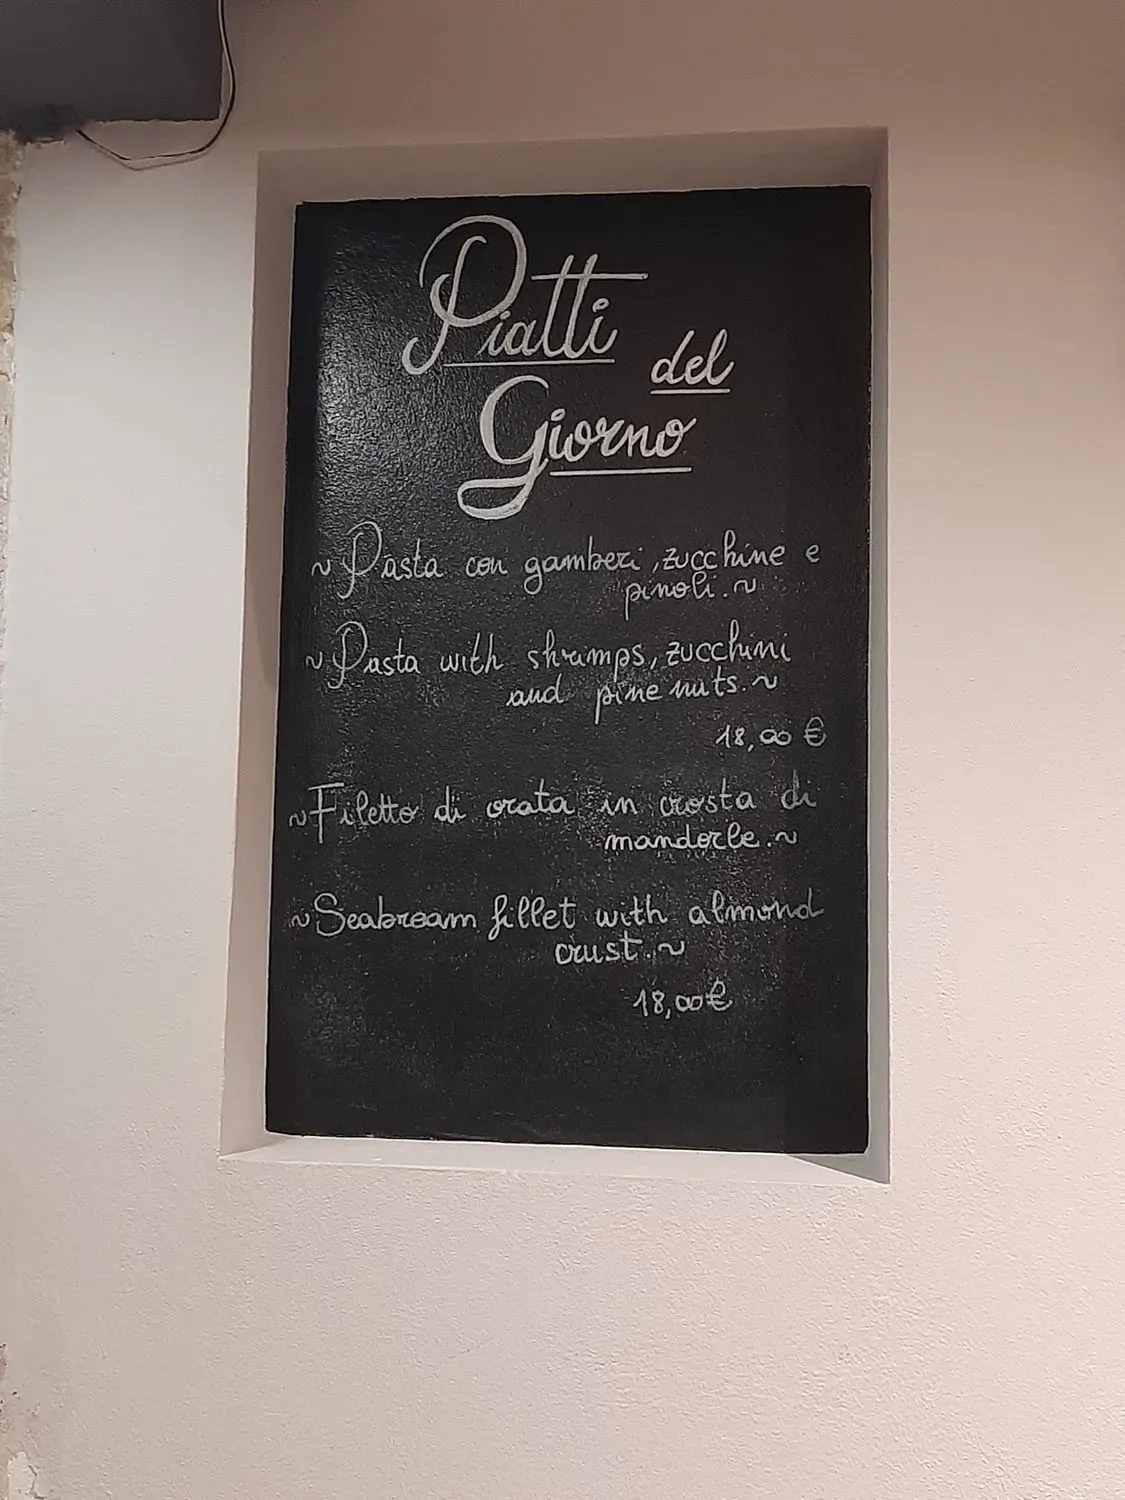 Piatti
del
Giorno
~ Pasta con gamberi, zucchine e
pinoli. ~
~ Pasta with shrimps, zucchini
and pine nuts. ~
18,00 €
~ Filetto di orata in crosta di
mandorle. ~
~ Seabream fillet with almond
crust. ~
18,00 €